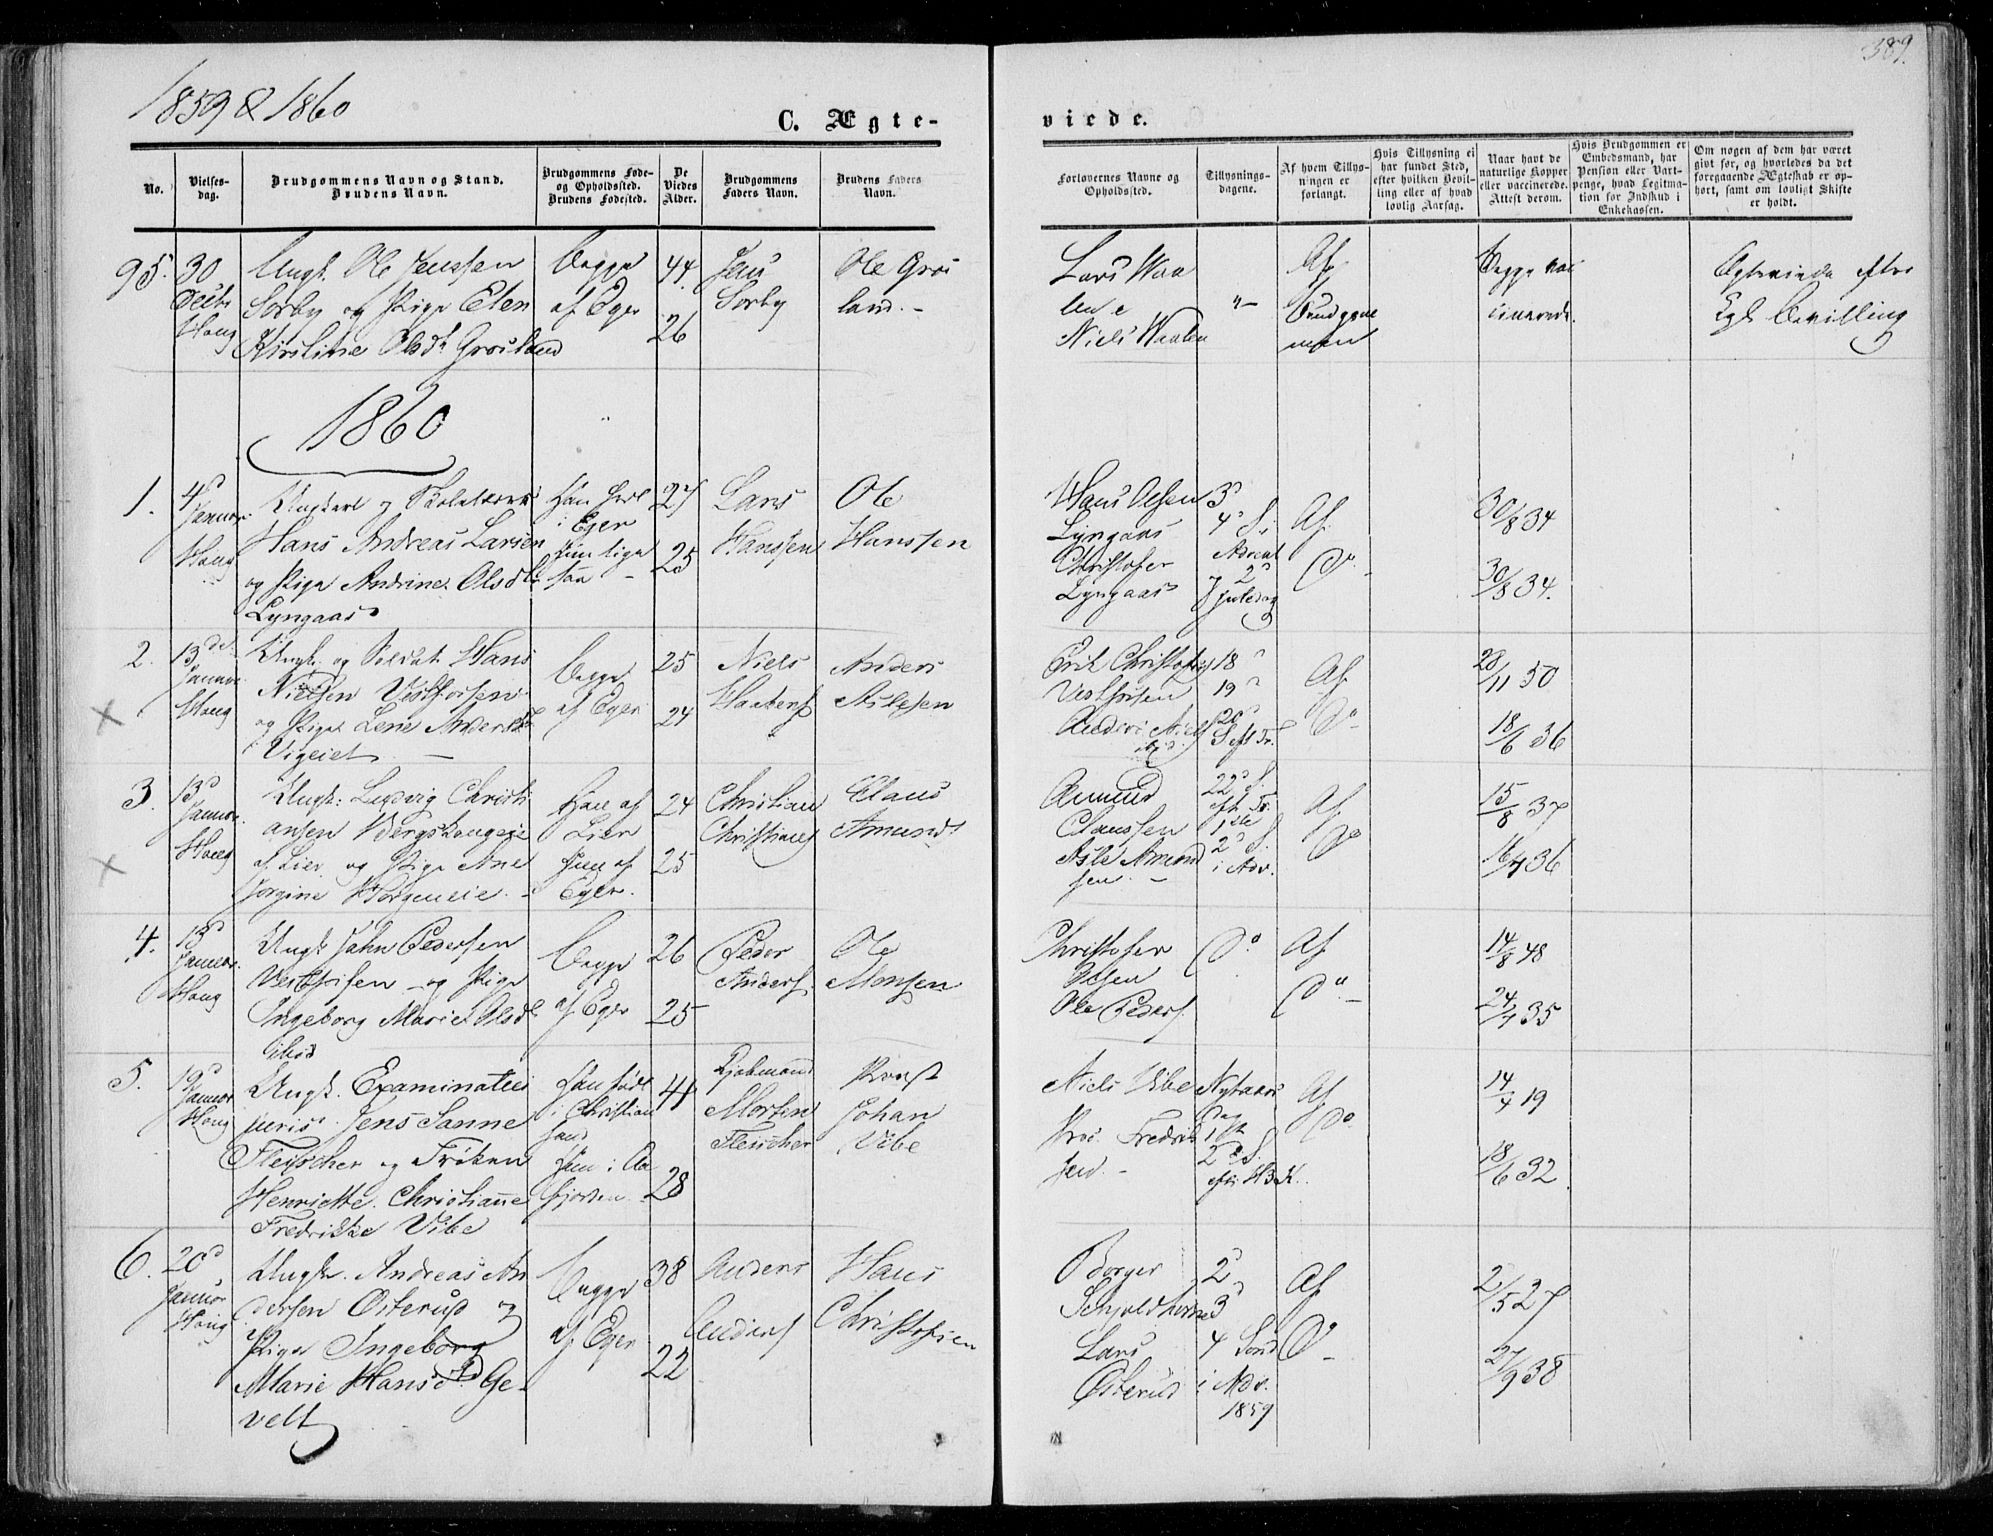 389.
1859 & 1860
C. Ægte-
viede.
No.
Vielses-
dag.
Brudgommens Navn og Stand.
Brudens Navn.
Brudgommens Føde-
og Opholdssted.
Brudens Fødested.
De
Viedes
Alder.
Brudgommens
Faders Navn.
Brudens Faders
Navn.
Forlovernes Navne og
Opholdssted.
Tillysnings-
dagene.
Af hvem Tillys-
ningen er
forlangt.
Hvis Tillysning ei
har fundet Sted,
efter hvilken Bevil-
ling eller af hvad
lovlig Aarsag.
Naar havt de
naturlige Kopper
eller vaccinerede.
Attest derom.
Hvis Brudgommen er
Embedsmand, har
Pension eller Vart-
penge, hvad Legitima-
tion for Indskud i
Enkekassen.
Om nogen af dem har været
givt før, og hvorledes da det
foregaaende Ægteskab er op-
hørt, samt om lovligt Skifte
er holdt.
95. 30
Haug
Ungk. Ole Jenssen
Sorby og Pige Elen
Kirstine Olsdr
Begge
af Eger
44.
26
Jens
Sorby
Ole
land. -
Lars
Niels Waalen
"-
Af
Brudgom
men
Begge vac
cinerede.
Egteviede efter
Kgl. Bevilling
1860
1. 4d
Januar.
Haug
Ungkarl og Skolelærer
Hans Andreas Larsen
og Pige Andrine Olsdtr
Lyngaas
Han født
i Eger
Hun lige
saa -
27
25
Lars
Hanssen
Ole
Hanssen
Hans Olsen
Lyngaas
Christofer
Lyngaas
3d
4d S. i
Advent
2d
Juledag
Af
Do.
30/8 34
30/8 34.
2. 13de
Januar
Haug
Ungk. og Soldat Hans
Nielsen Vestfossen
og Pige Lene Andersdtr
Begge
af Eger
25
24
Niels
Anders
Erik
18d
19d
20d
S. eft. Tr.
Af
Do
28/11 50
18/6 36
3. 13d
Januar.
Haug
Ungk: Ludvig Christi
ansen
af Lier og Pige Ane
Jorgine
Han af
Lier
Hun af
Eger.
24
25
Christian
Claus
Amunds
Amund
Claussen
Asle Amund
sen. -
22d S.
eft. Tr.
1ste
2d S.
i Adv.
Af
Do
15/8 37
16/7 36
4. 13d
Januar.
Haug
Ungk. John Pedersen
Vestfossen - og Pige
Ingeborg Marie Olsdtr
ibid
Begge
af Eger
26
25
Peder
Anders.
Ole
Monsen
Christofer
Olsen
Ole Peders.
Do.
Af
Do. -
14/8 48
24/7 35
5. 19d
Januar
Haug
Ungk. Examinatus
juris. Jens Sanne
Fleischer og Frøken
Henriette Christiane
Fredrikke Vibe
Han født
i Christian
sand
Hun i Aa
fjorden
41
28
Kjøbmand
Morten
Fleischer
Provst
Johan
Vibe
Niels Vibe
Fredrik
sen. -
Nytaars
Dag
1ste
2d S.
eft. H3K.
Af
Do
14/4 19
18/6 32
6. 20d
Januar
Haug
Ungk. Andreas An
dersen Østerud og
Pige Ingeborg
Marie Hansdtr. Ge-
velt
Begge
af Eger
38
22
Anders
Anders.
Hans
Christofersen
Borger
Lars
Østerud
2d
3d
4 Sønd
i Adv.
1859
Af
Do -
2/5 27
27/9 38